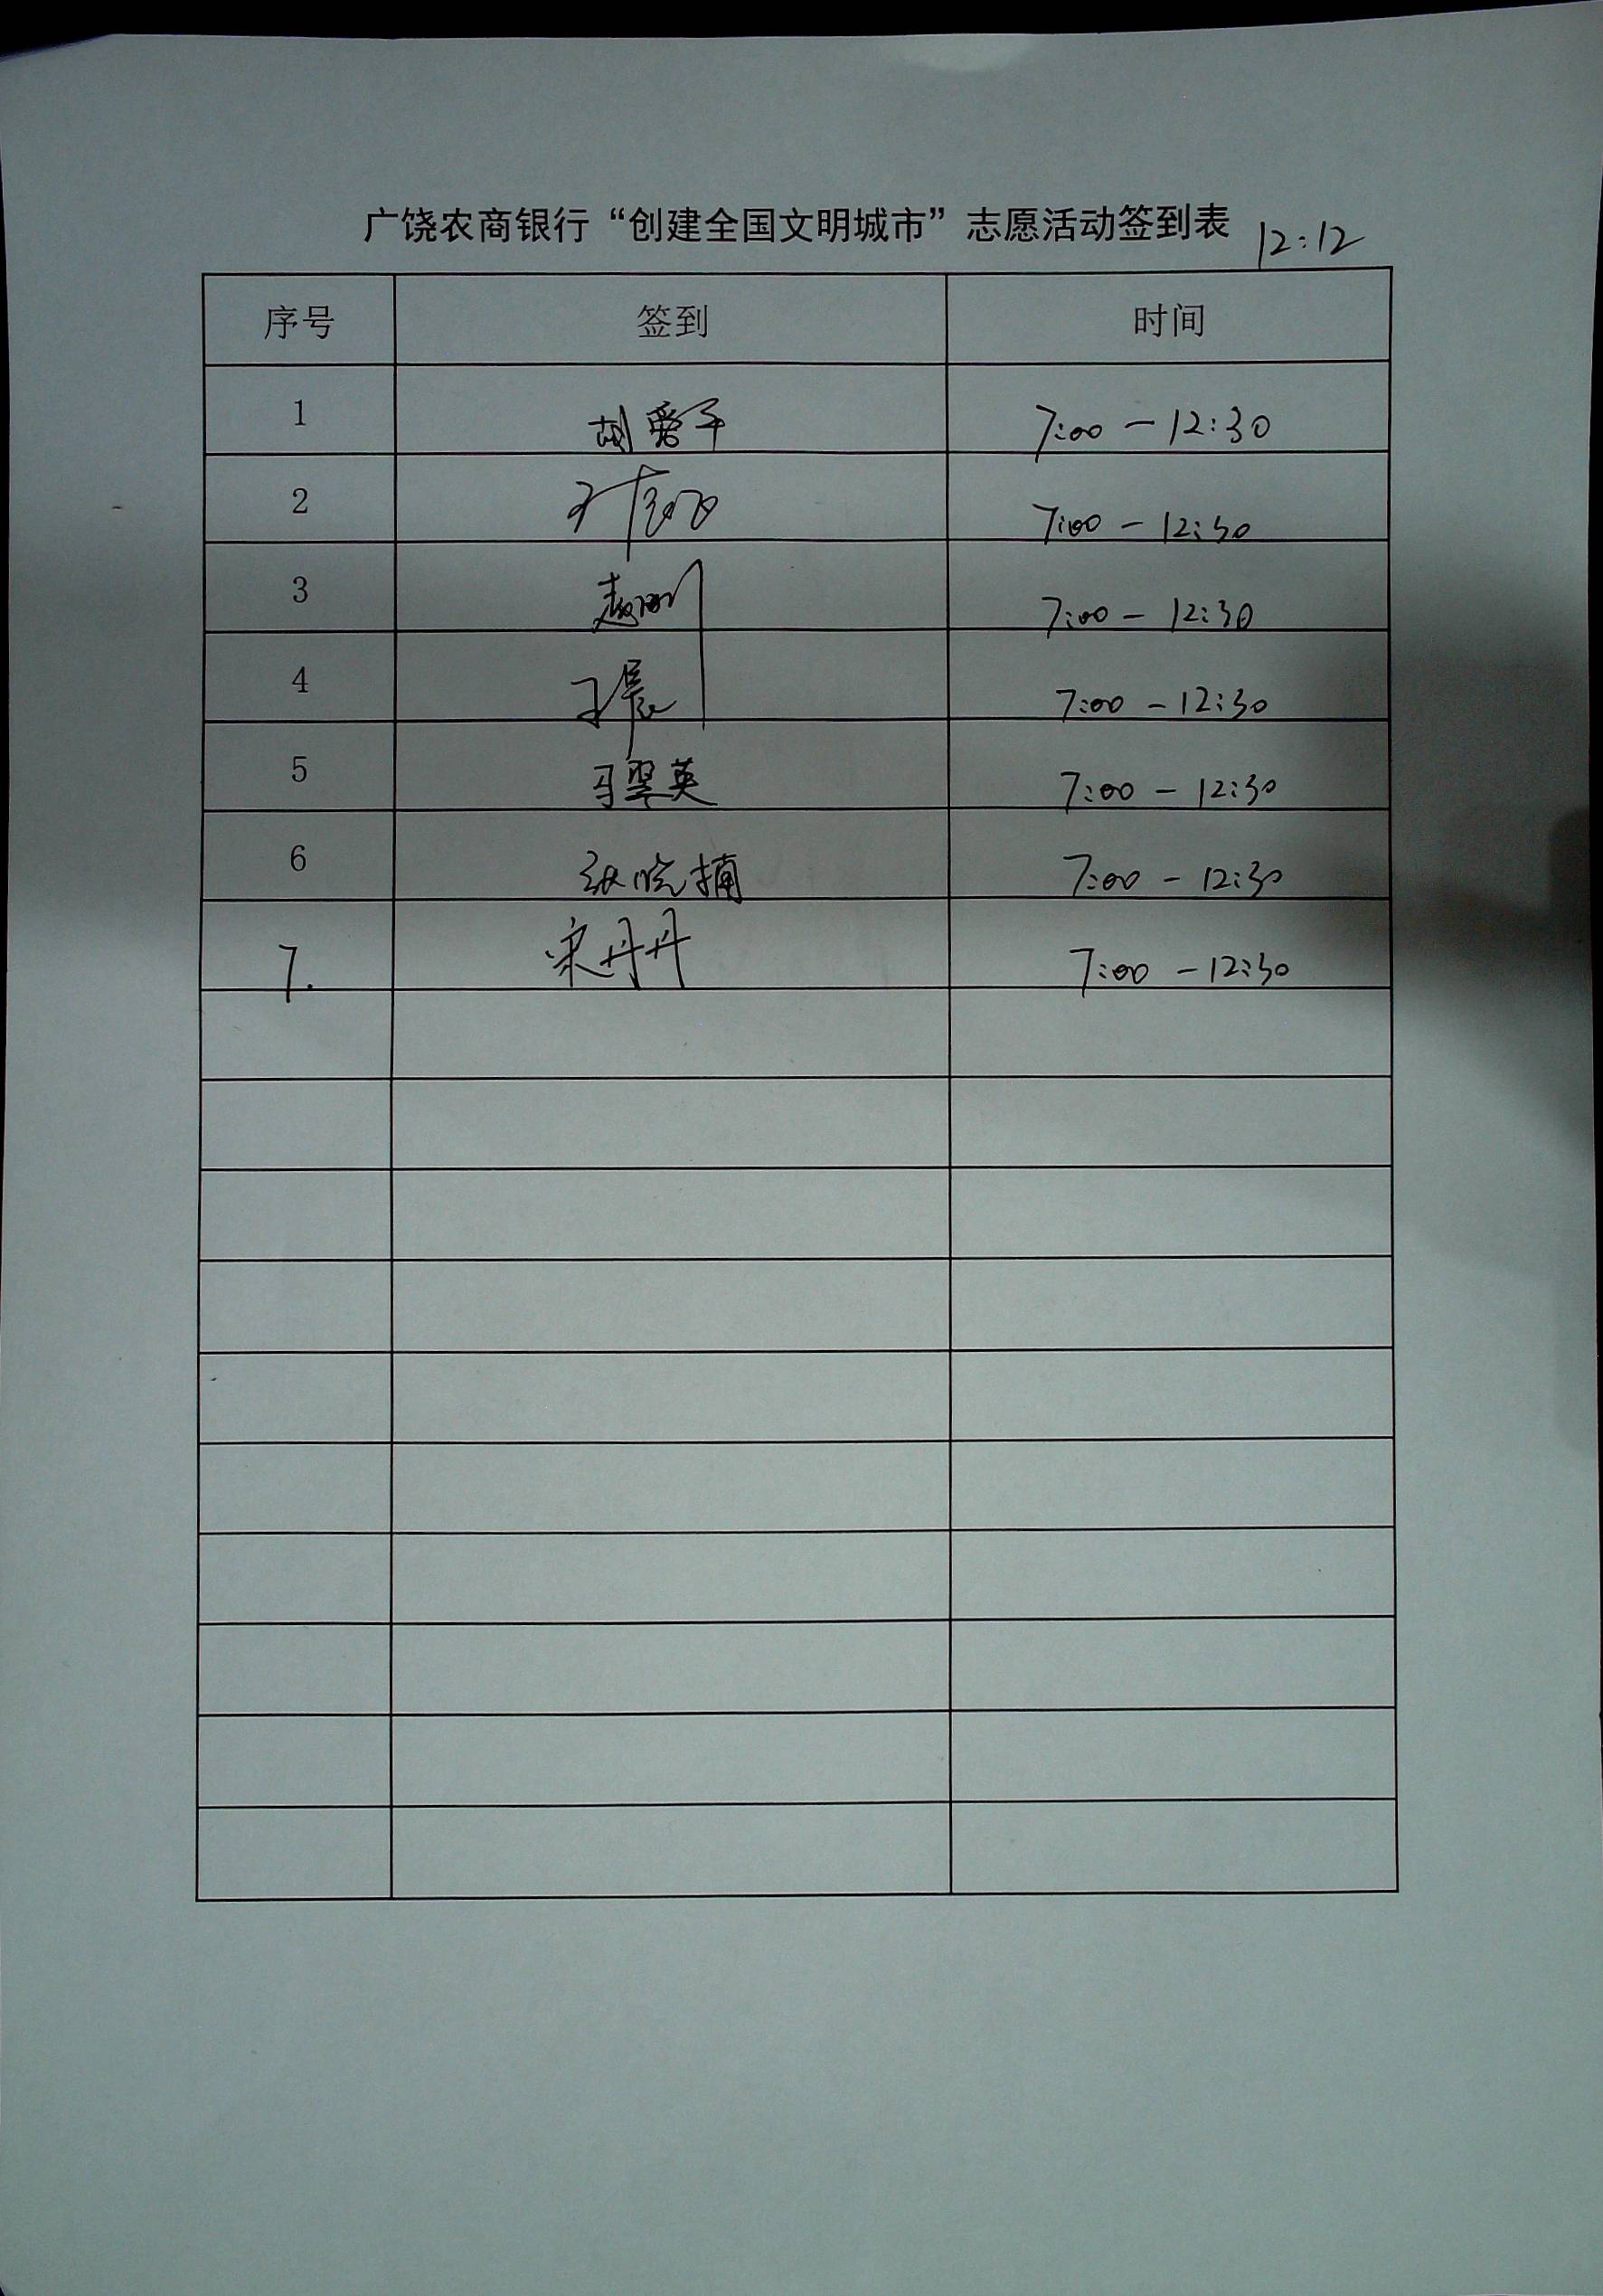 广饶农商银行“创建全国文明城市”志愿活动签到表 12:12
序号 签到 时间
1 胡爱 7:00 - 12:30
2 7:00 - 12:30
3 赵刚 7:00 - 12:30
4 王晨 7:00 - 12:30
5 马翠英 7:00 - 12:30
6 张晓楠 7:00 - 12:30
7. 宋丹丹 7:00 - 12:30